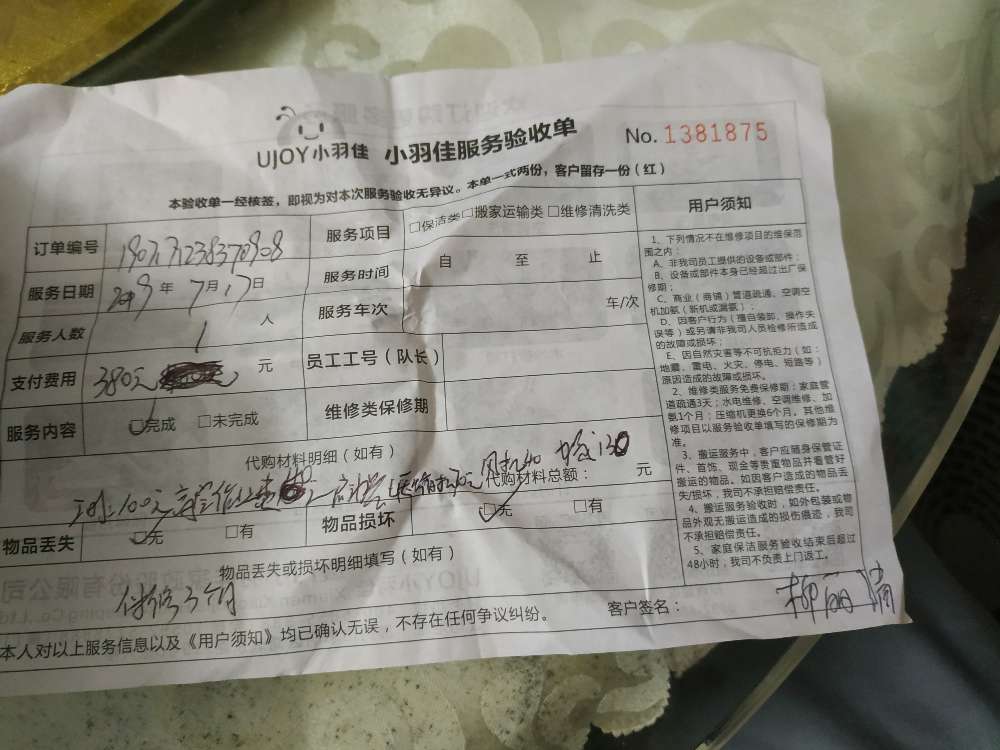 UJOY小羽佳 小羽佳服务验收单 No. 1381875
本验收单一经核签，即视为对本次服务验收无异议。本单一式两份，客户留存一份（红）
订单编号 服务项目 □保洁类□搬家运输类 □维修清洗类
服务日期 2019年 7月17日 服务时间 自 至 止
服务人数 1 人 服务车次 车/次
支付费用 380元 元 员工工号（队长）
服务内容 □完成 □未完成 维修类保修期
代购材料明细（如有） 代购材料总额： 元
物品丢失 □无 □有 物品损坏 □无 □有
物品丢失或损坏明细填写（如有）
保修3个月
本人对以上服务信息以及《用户须知》均已确认无误，不存在任何争议纠纷。 客户签名：
用户须知
1、下列情况不在维修项目的维保范
围之内：
A、非我司员工提供的设备或部件；
B、设备或部件本身已经超过出厂保
修期；
C、商业（商铺）管道疏通、空调空
机加氨（新机或漏氨）；
D、因客户行为（擅自装卸、操作失
误等）或另请非我司人员检修所造成
的故障或损坏；
E、因自然灾害等不可抗拒力（如：
地震、雷电、火灾、停电、短路等）
原因造成的故障或损坏。
2、维修类服务免费保修期：家庭管
道疏通3天；水电维修、空调维修、加
氨1个月；压缩机更换6个月。其他维
修项目以服务验收单填写的保修期为
准。
3、搬运服务中，客户应随身保管证
件、首饰、现金等贵重物品并看管好
搬运的物品。如因客户造成的物品丢
失/损坏，我司不承担赔偿责任。
4、搬运服务验收时，如外包装或物
品外观无搬运造成的损伤痕迹，我司
不承担赔偿责任。
5、家庭保洁服务验收结束后超过
48小时，我司不负责上门返工。